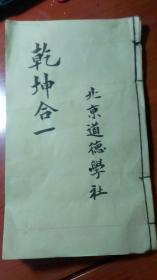 北京道德學社
乾坤合一